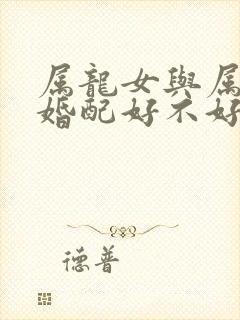 属龍女與属
婚配好不好
德普